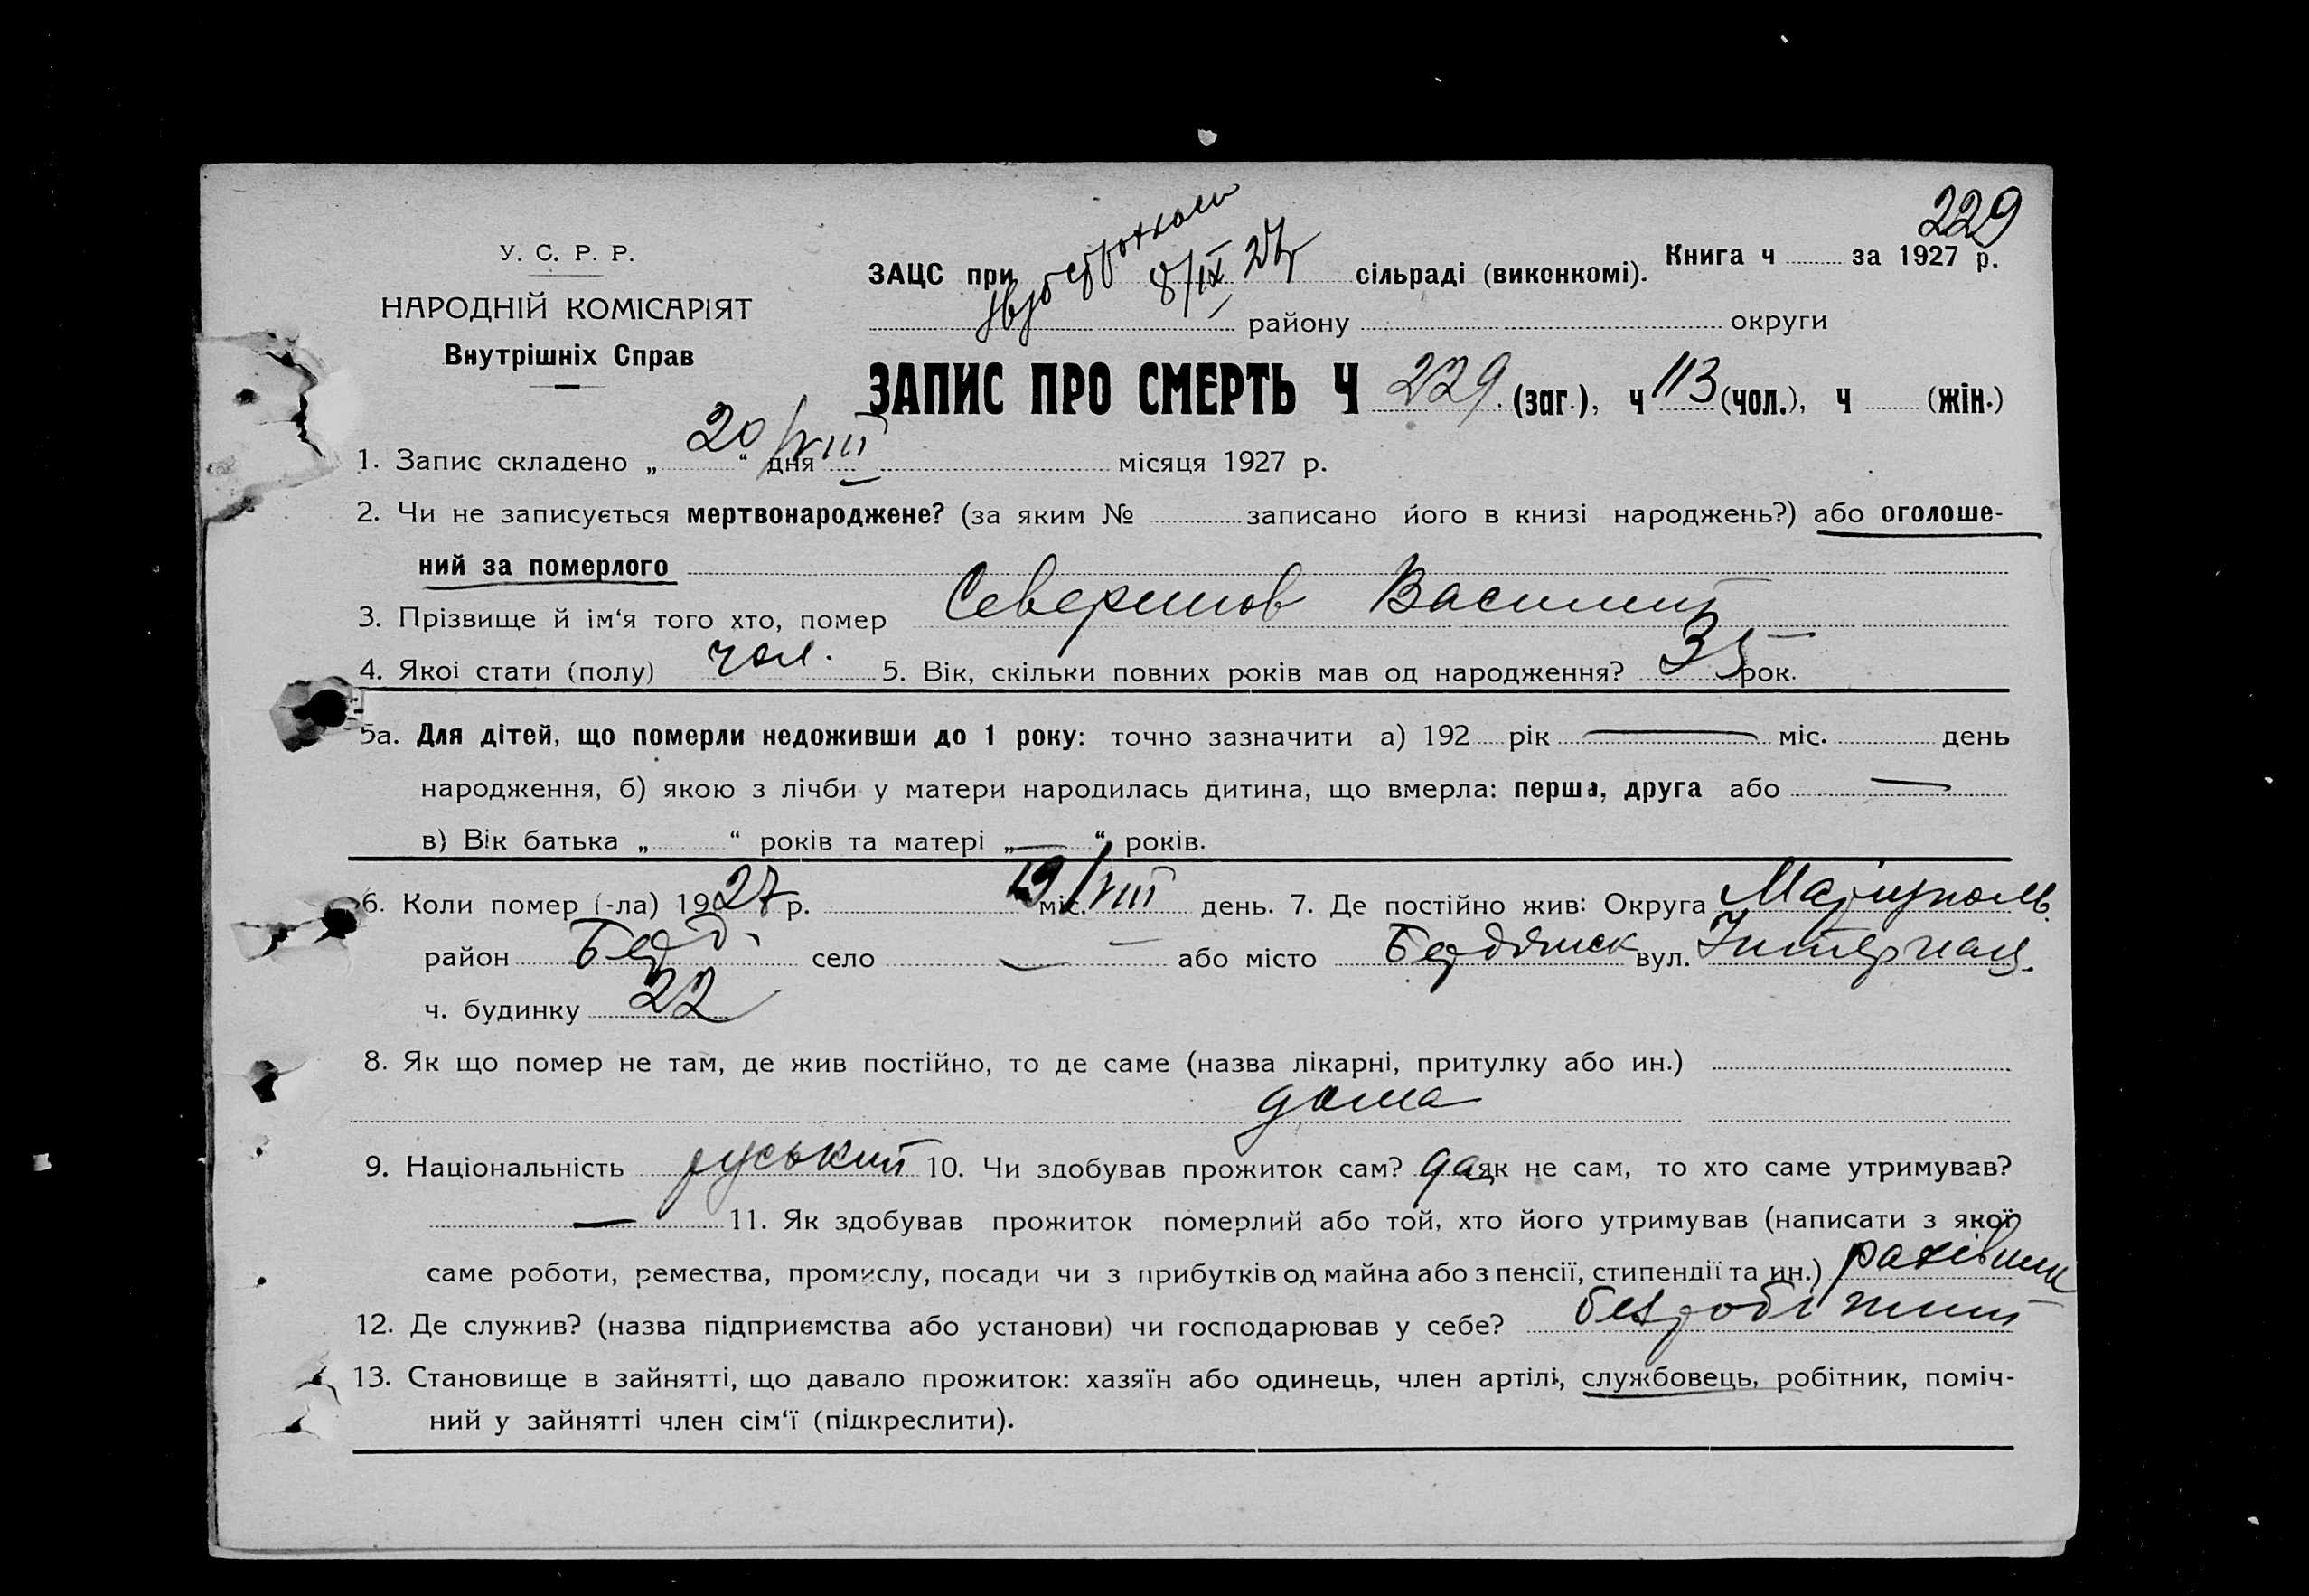 229
У. С. Р. Р.
НАРОДНІЙ КОМІСАРІЯТ
Внутрішніх Справ
ЗАЦС при 8/IX 27 сільраді (виконкомі). Книга ч за 1927 р.
району округи
ЗАПИС ПРО СМЕРТЬ Ч 229 (заг.), ч 113 (чол.), ч (жін.)
1. Запис складено „ 20/VIII “ дня місяця 1927 р.
2. Чи не записується мертвонароджене? (за яким № записано його в книзі народжень?) або оголоше-
ний за померлого
3. Прізвище й ім‘я того хто, помер Северинов Василий
4. Якої стати (полу) чол. 5. Вік, скільки повних років мав од народження? 35 рок.
5а. Для дітей, що померли недоживши до 1 року: точно зазначити а) 192 рік — міс. день
народження, б) якою з лічби у матери народилась дитина, що вмерла: перша, друга або —
в) Вік батька „ “ років та матері „ — “ років.
6. Коли помер (-ла) 1927 р. 19/VIII міс. день. 7. Де постійно жив: Округа Маріуполь.
район Берд. село — або місто Бердянск вул. Інтернац.
ч. будинку 22
8. Як що помер не там, де жив постійно, то де саме (назва лікарні, притулку або ин.)
дома
9. Національність руський 10. Чи здобував прожиток сам? да як не сам, то хто саме утримував?
— 11. Як здобував прожиток померлий або той, хто його утримував (написати з якої
саме роботи, ремества, промислу, посади чи з прибутків од майна або з пенсії, стипендії та ин.) рахівник
12. Де служив? (назва підприємства або установи) чи господарював у себе? безробітний
13. Становище в зайнятті, що давало прожиток: хазяїн або одинець, член артілі, службовець, робітник, поміч-
ний у зайнятті член сім‘ї (підкреслити).